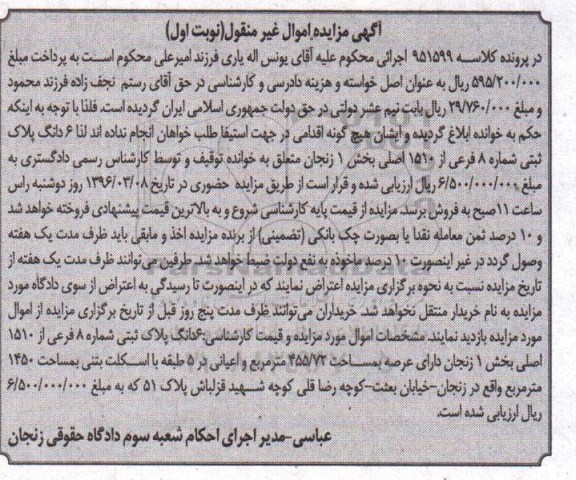 آگهی مزایده اموال غیر منقول(نوبت اول)
در پرونده کلاسه ۹۵۱۵۹۹ اجرائی محکوم علیه آقای یونس اله یاری فرزند امیرعلی محکوم است به پرداخت مبلغ
۵۹۵/۲۰۰/۰۰۰ ریال به عنوان اصل خواسته و هزینه دادرسی و کارشناسی در حق آقای رستم نجف زاده فرزند محمود
و مبلغ ۲۹/۷۶۰/۰۰۰ ریال بابت نیم عشر دولتی در حق دولت جمهوری اسلامی ایران گردیده است. فلذا با توجه به اینکه
حکم به خوانده ابلاغ گردیده و ایشان هیچ گونه اقدامی در جهت استیفا طلب خواهان انجام نداده اند لذا ۶ دانگ پلاک
ثبتی شماره ۸ فرعی از ۱۵۱۰ اصلی بخش ۱ زنجان متعلق به خوانده توقیف و توسط کارشناس رسمی دادگستری به
مبلغ ۶/۵۰۰/۰۰۰/۰۰۰ ریال ارزیابی شده و قرار است از طریق مزایده حضوری در تاریخ ۱۳۹۶/۰۳/۰۸ روز دوشنبه راس
ساعت ۱۱ صبح به فروش برسد. مزایده از قیمت پایه کارشناسی شروع و به بالاترین قیمت پیشنهادی فروخته خواهد شد
و ۱۰ درصد ثمن معامله نقدا یا بصورت چک بانکی (تضمینی) از برنده مزایده اخذ و مابقی باید ظرف مدت یک هفته
وصول گردد در غیر اینصورت ۱۰ درصد ماخوذه به نفع دولت ضبط خواهد شد. طرفین می توانند ظرف مدت یک هفته از
تاریخ مزایده نسبت به نحوه برگزاری مزایده اعتراض نمایند که در اینصورت تا رسیدگی به اعتراض از سوی دادگاه مورد
مزایده به نام خریدار منتقل نخواهد شد. خریداران می توانند ظرف مدت پنج روز قبل از تاریخ برگزاری مزایده از اموال
مورد مزایده بازدید نمایند. مشخصات اموال مورد مزایده و قیمت کارشناسی:۶دانگ پلاک ثبتی شماره ۸ فرعی از ۱۵۱۰
اصلی بخش ۱ زنجان دارای عرصه بمساحت ۴۵۵/۷۲ مترمربع و اعیانی در ۵ طبقه با اسکلت بتنی بمساحت ۱۴۵۰
مترمربع واقع در زنجان-خیابان بعثت-کوچه رضا قلی کوچه شهید قزلباش پلاک ۵۱ که به مبلغ ۶/۵۰۰/۰۰۰/۰۰۰
ریال ارزیابی شده است.
عباسی-مدیر اجرای احکام شعبه سوم دادگاه حقوقی زنجان
ParsNamadData